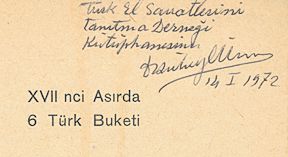 Türk El Sanatlarini
Tanıtma Derneği
Kütüphanesine
14 I 1972
XVII nci Asırda
6 Türk Buketi